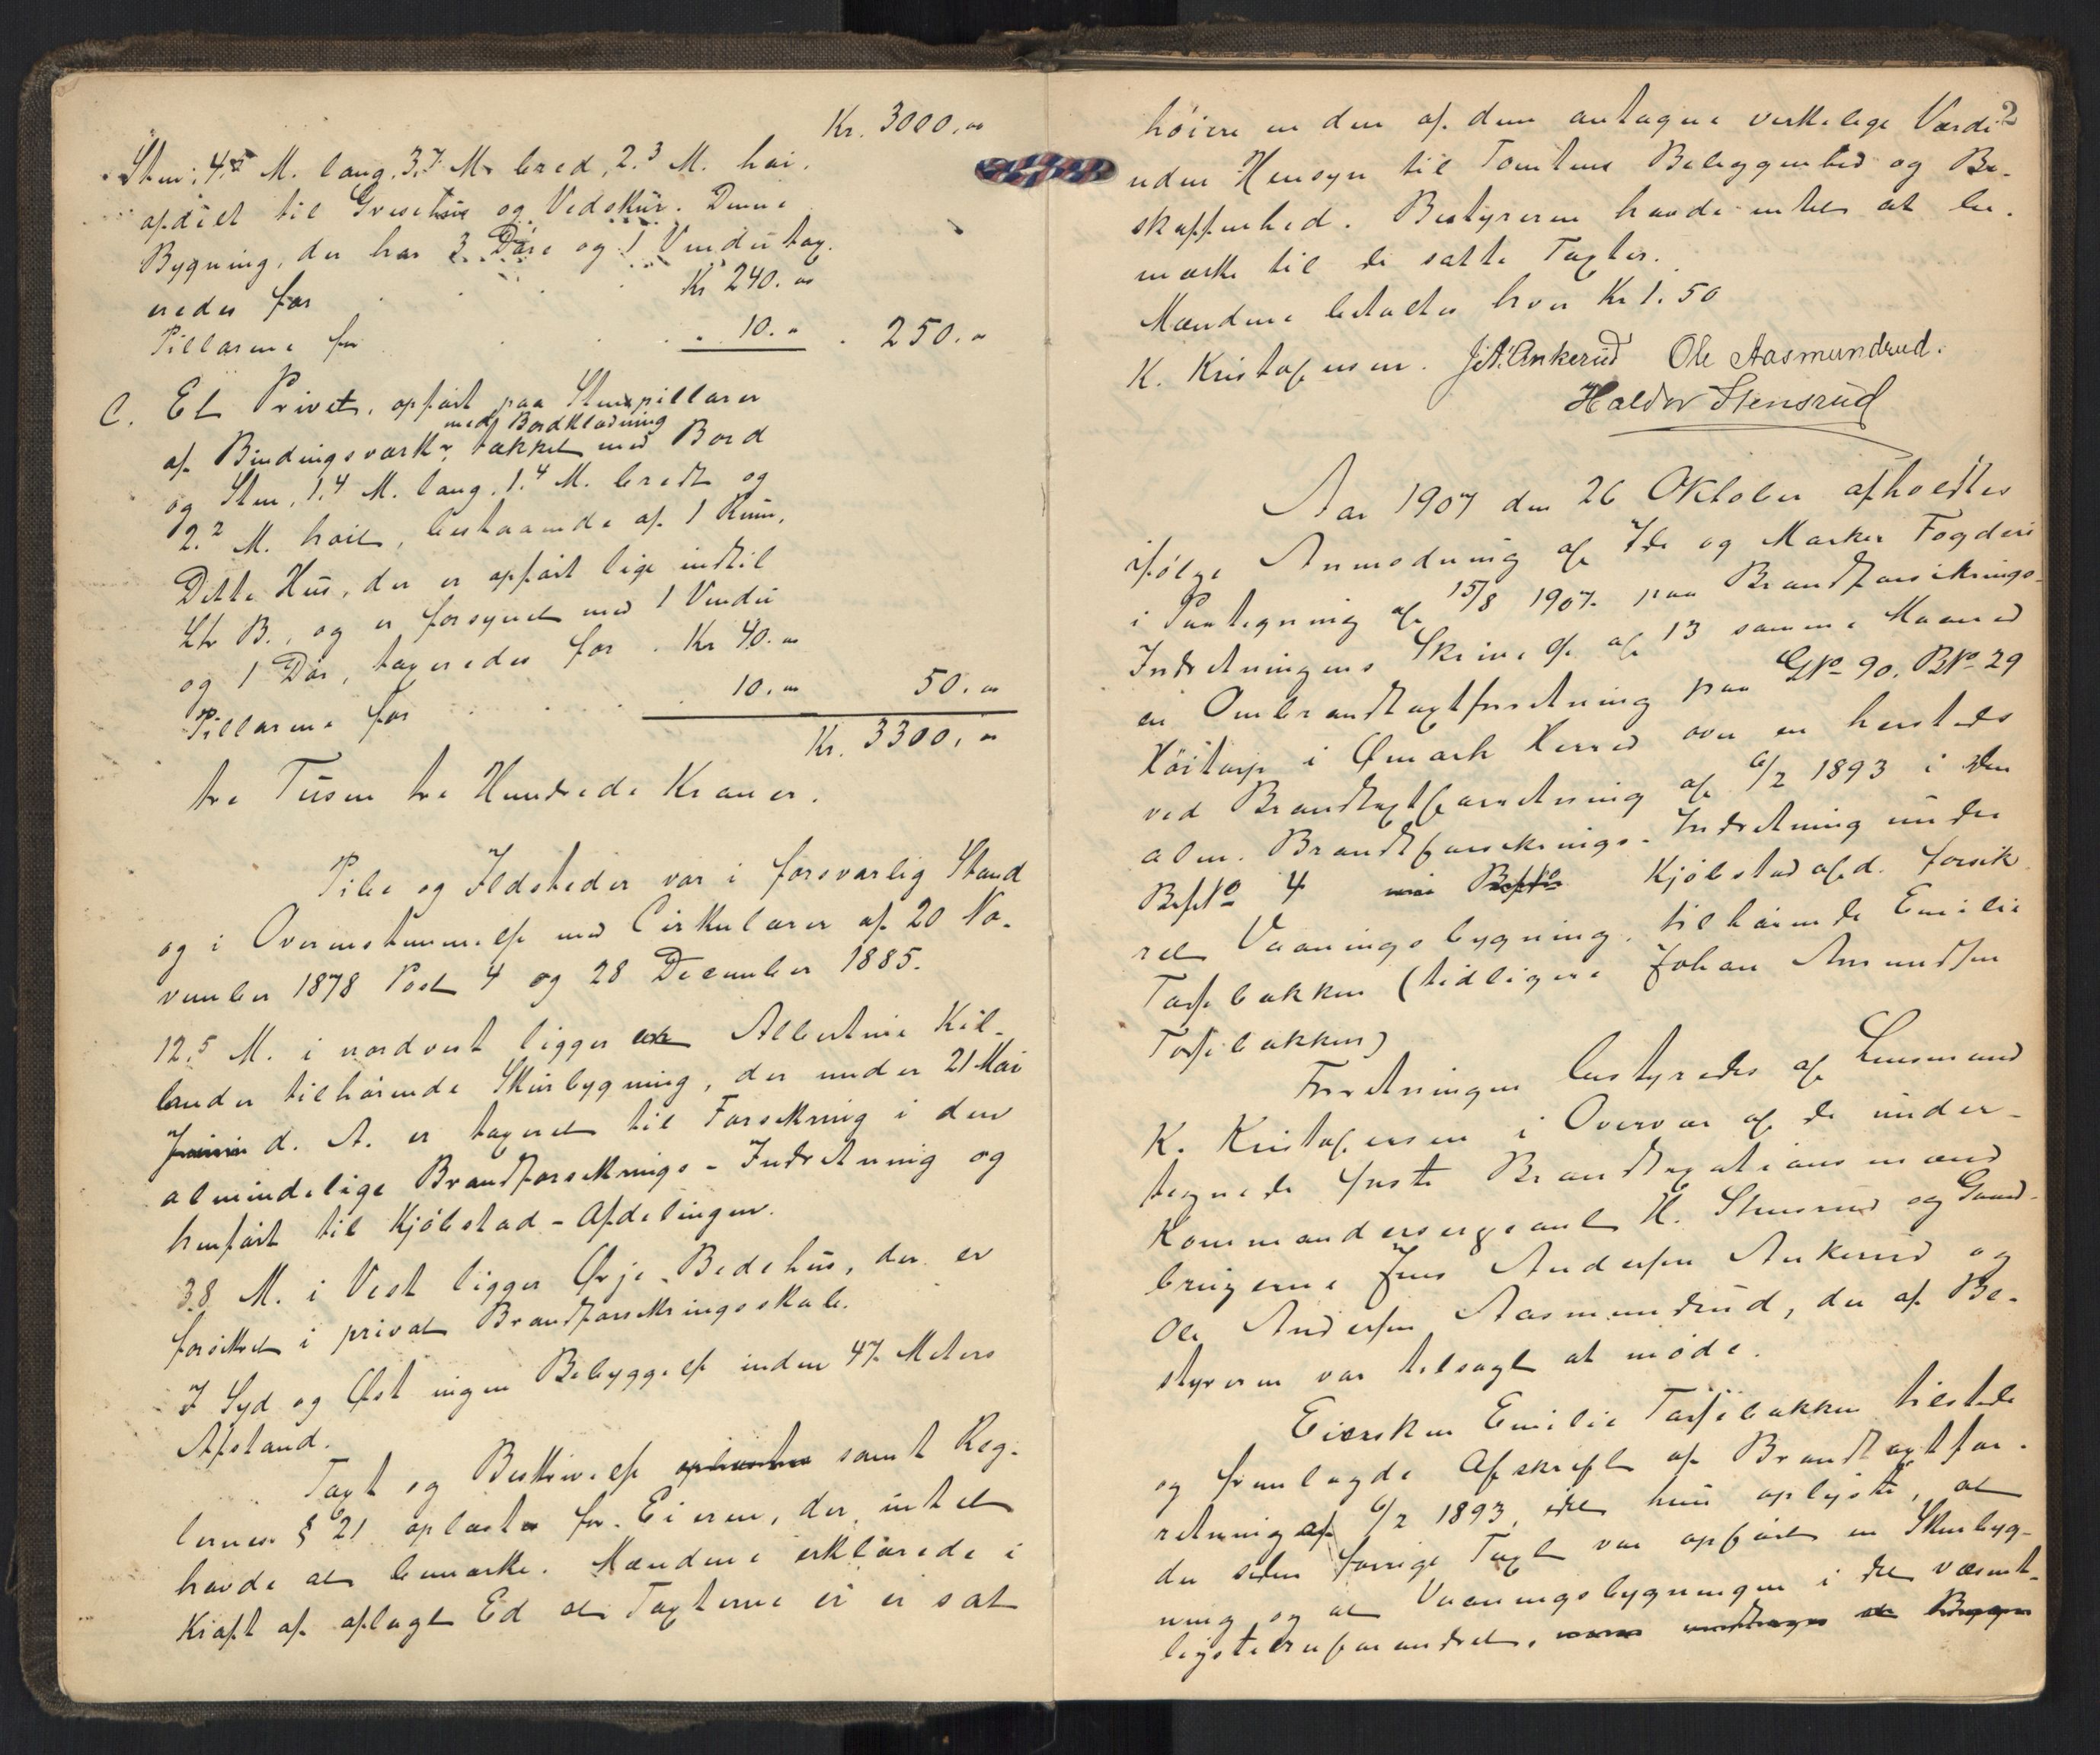 Kr. 3000.00
Sten, 4.5 M. lang. 3.7 M. bred, 2.3 M. høi.
afdelt til Grisehus og Vedskur. Denne
Bygning, der har 3 Døre og 1 Vindu tax-
eredes for . . . Kr 240.00
Pillarene for . . . " 10.00 . 250.00
C. Et Privet, opført paa Stenpillarer
med Bordklædning
af Bindingsværk, tækket med Bord
og Sten, 1.4 M. lang. 1.4 M. bredt og
2.2 M. høit, bestaaende af 1 Rum.
Dette Hus, der er opført lige indtil
Ltr B., og er forsynet med 1 Vindu
og 1 Dør, taxeredes for . Kr 40.00
Pillarene for . . . 10.00 50.00
Kr. 3300.00
tre Tusen tre Hundrede Kroner.
Piber og Ildsteder var i forsvarlig Stand
og i Overenstemmelse med Cirkulærer af 20 No-
vember 1878 Post 4 og 28 December 1885.
12.5 M. i nordvest ligger en Albertine Kil-
lander tilhørende Skurbygning, der under 21 Mai
Juni d. A. er taxeret til Forsikring i den
almindelige Brandforsikrings-Indretning og
henført til Kjøbstad-Afdelingen.
38 M. i Vest ligger Ørje Bedehus, der er
forsikret i privat Brandforsikringsskab.
I Syd og Øst ingen Bebyggelse inden 47 Meters
Afstand.
Taxt og Beskrivelse oplæstes samt Reg-
lernes § 21 oplæstes for Eieren, der intet
havde at bemærke. Mændene erklærede i
Kraft af aflagt Ed at Taxterne ei er sat
2
høiere en den af dem antagne verkelige Værdi
uden Hensyn til Tomtens Beliggenhed og Be-
skaffenhed. Bestyreren havde intet at be-
mærke til de satte Taxter.
Mændene betaltes hver Kr 1.50
K. Kristofersen. J. A. Ankerud Ole Aasmundrud.
Haldor Stensrud
Aar 1907 den 26 Oktober afholdtes
ifølge Anmodning af Ide og Marker Fogderi
i Paategning af 15/8 1907 paa Brandforsikrings-
Indretningens Skrivelse af 13 samme Maaned
en Ombrandtaxtforretning paa GNo 90. BNo 29
Höitorp i Ømark Herred over en hersteds
ved Brandtaxtforretning af 6/2 1893 i den
alm. Brandforsikrings-Indretning under
BesNo 4 Kjøbstadafd. forsik-
ret Vaaningsbygning, tilhørende Emilie
Torsebakken (tidligere Johan Amundsen
Torsebakken)
Forretningen bestyredes af Lensmand
K. Kristofersen i Overvær af de under-
tegnede faste Brandtaxationsmænd
Kommandersergeant H. Stensrud og Gaard-
brugerne Jens Andersen Ankerud og
Ole Andersen Aasmundrud, der af Be-
styreren var tilsagt at møde.
Eiersken Emilie Torsebakken tilstede
og fremlagde Afskrift af Brandtaxtfor-
retning af 6/2 1893, idet hun oplyste, at
der siden forrige Taxt var opført en Skurbyg-
ning og at Vaaningsbygningen i det væsent-
ligste er uforandret.